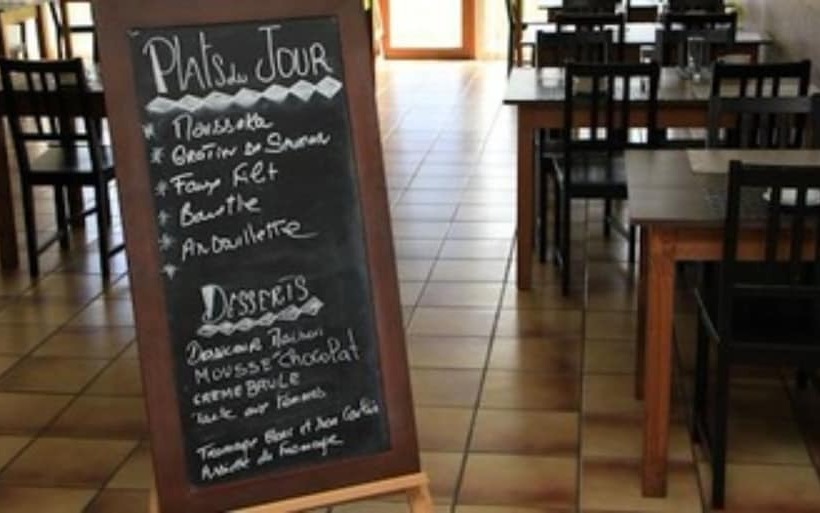 Plats du JOUR
* Moussaka
* Gratin de Saumon
* Faux Filet
* Bavette
* Andouillette
*
DESSERTS
Douceur Maison
MOUSSE Chocolat
CREME BRULE
Tarte aux Pommes
Fromage Blanc et Son Coulis
Assiette de Fromage